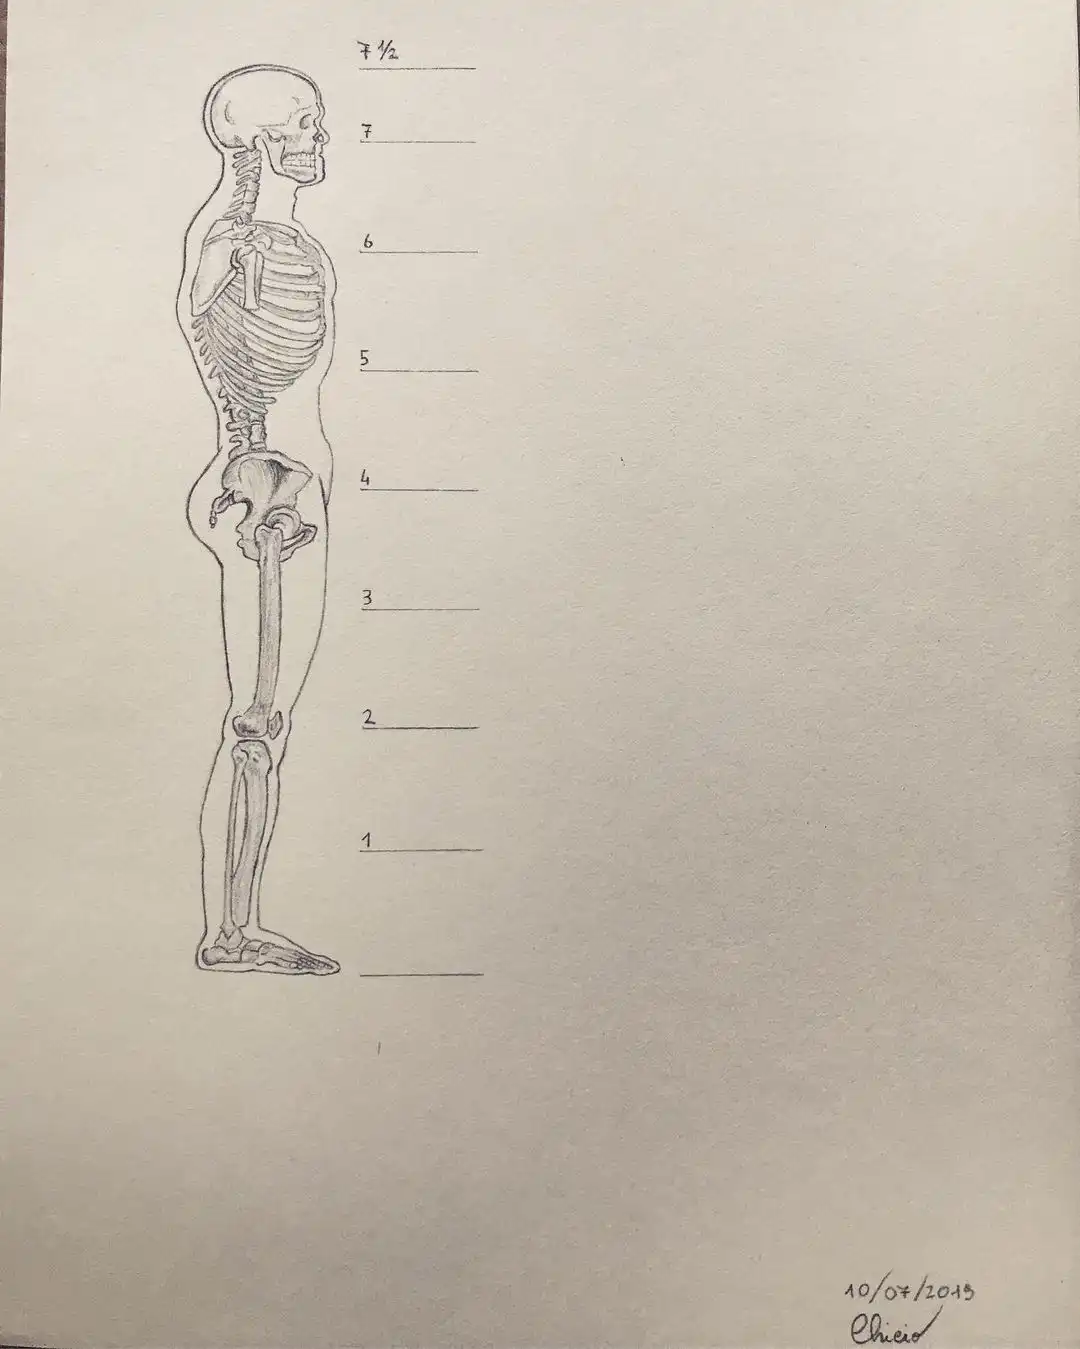 7 1/2
7
6
5
4
3
2
1
10/07/2019
Chicio